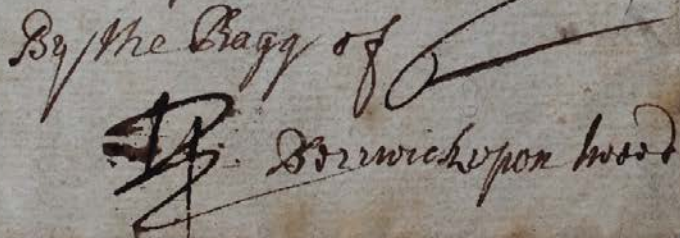 By the Bagg of
Berrwick upon tweed